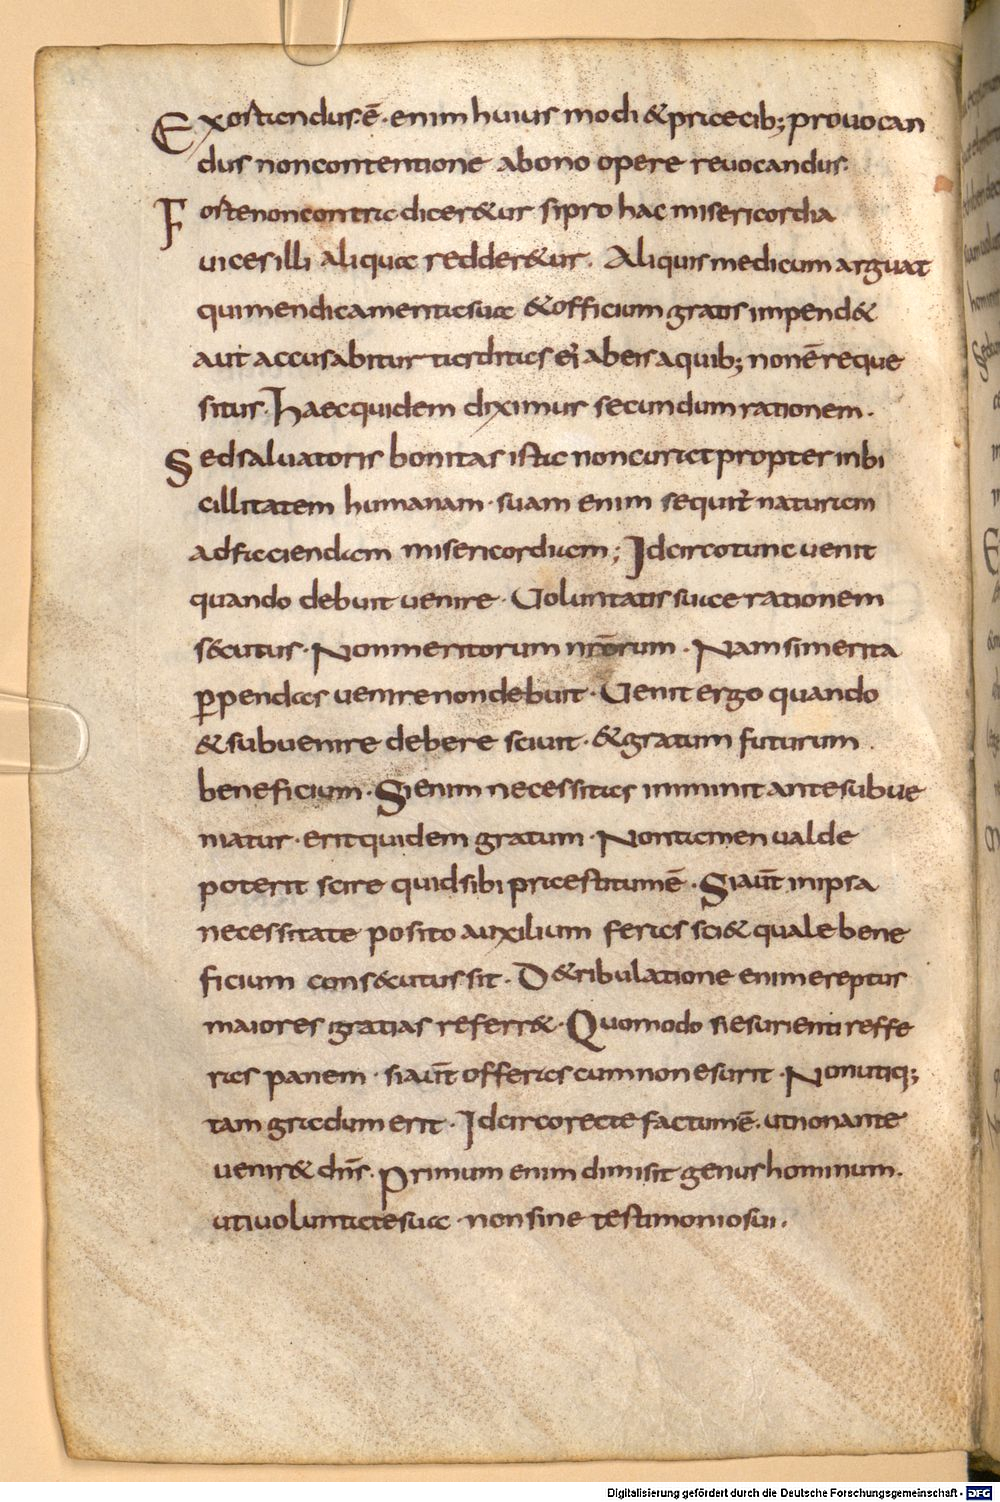 Exostiendus ē enim huius modi & precib; prouocan
dus non contentione a bono opere reuocandus.
Fostenon contra dicer&ur si pro hac misericordia
uices illi aliquae redder&ur. Aliquis medicum arguat
qui mendicamenta sua & officium gratis impend&
aut accusabitur tarditas ei ab eis a quib; non ē reque
situs. Haec quidem diximus secundum rationem.
Sed saluatoris bonitas ista non curat propter inbi
cillitatem humanam. suam enim sequit naturam
ad faciendam misericordiam; Idcirco tunc uenit
quando debuit uenire. Voluntatis suae rationem
s&cutus. Non meritorum nrōrum. Nam si merita
perpendas uenire non debuit. Venit ergo quando
& subuenire debere sciuit. & gratum futurum
beneficium. Si enim necessitas inminit ante subue
niatur. erit quidem gratum. Non tamen ualde
poterit scire quid sibi praestitum ē. Si aūt in ipsa
necessitate posito auxilium feras sci& quale bene
ficium cons&cutus sit. D& ribulatione enim ereptus
maiores gratias referr&. Quomodo si esurienti reffe
ras panem. si aūt offeras cum non esurit. Non utiq;
tam gratum erit. Idcirco recte factum ē. ut non ante
uenir& dn̄s. Primum enim dimisit genus hominum.
uti uoluntate sua. non sine testimonio sui.
Digitalisierung gefördert durch die Deutsche Forschungsgemeinschaft - DFG